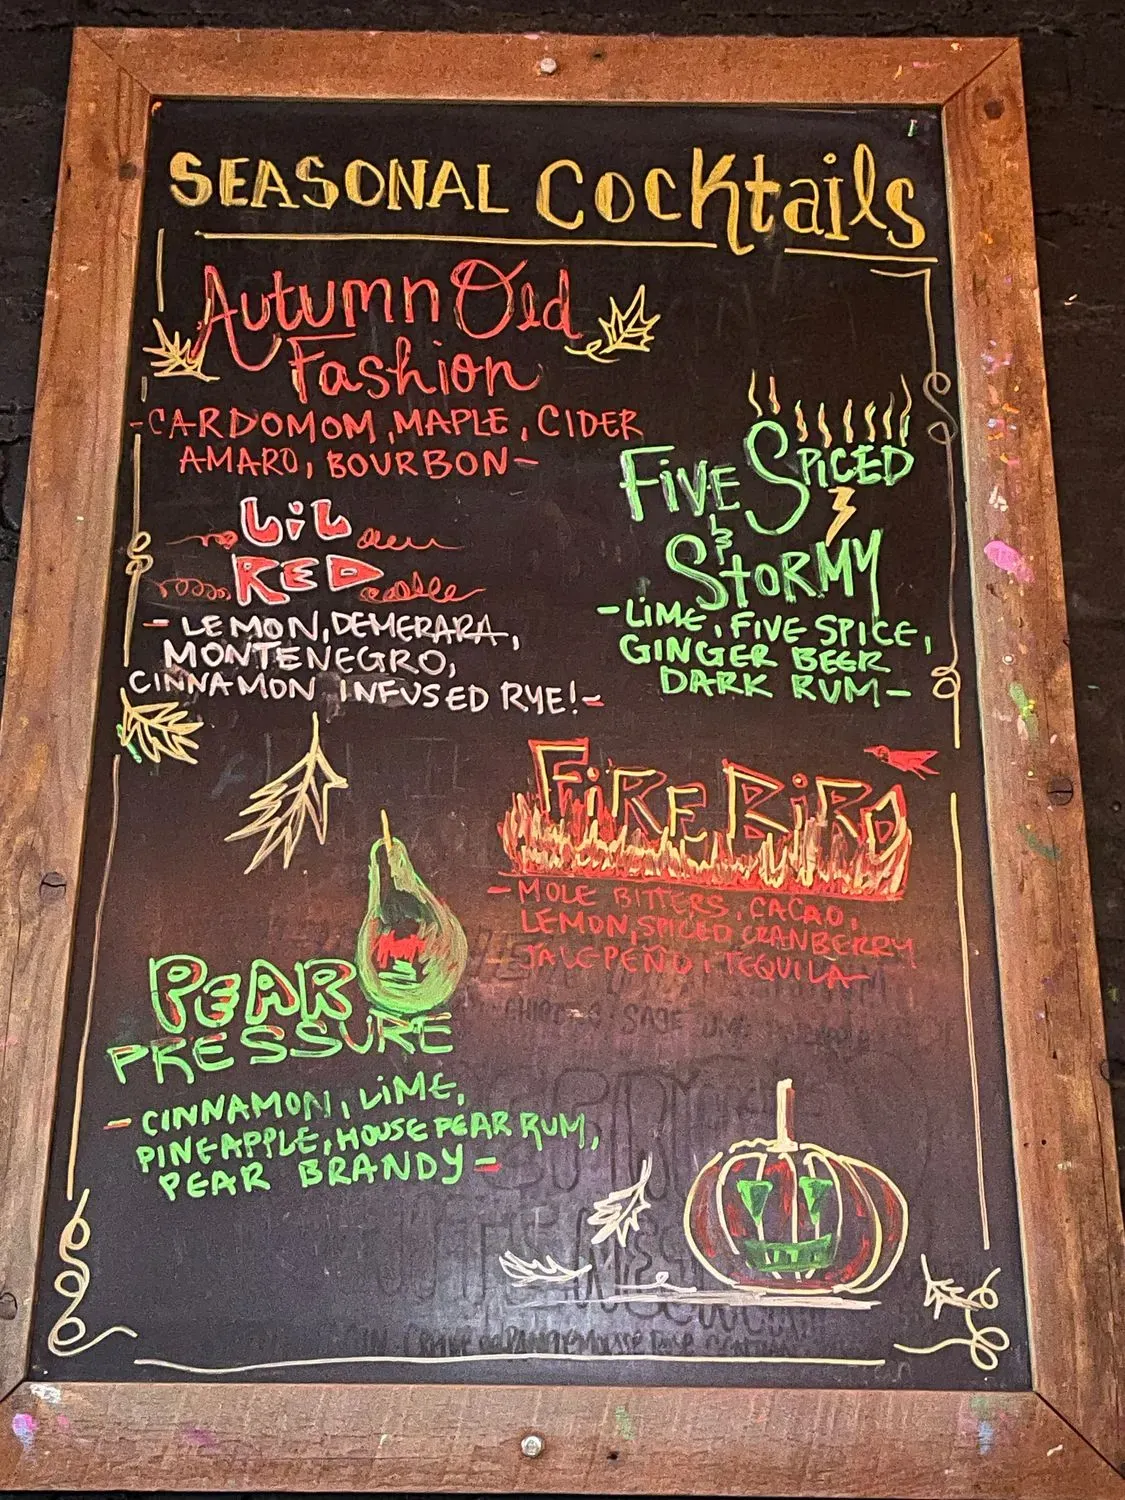 SEASONAL Cocktails
Autumn Old
Fashion
-CARDOMOM, MAPLE, CIDER
AMARO, BOURBON-
LiL
RED
- LEMON, DEMERARA,
MONTENEGRO,
CINNAMON INFUSED RYE!-
FiVE SPiCED
&
STORMY
-LiME, FIVE SPICE,
GINGER BEER
DARK RUM-
FiRE BiRD
- MOLE BITTERS, CACAO,
LEMON, SPICED CRANBERRY
JALEPEÑO, TEQUILA-
PEAR
PRESSURE
- CINNAMON, LiME,
PINEAPPLE, HOUSE PEAR RUM,
PEAR BRANDY-
SAGE